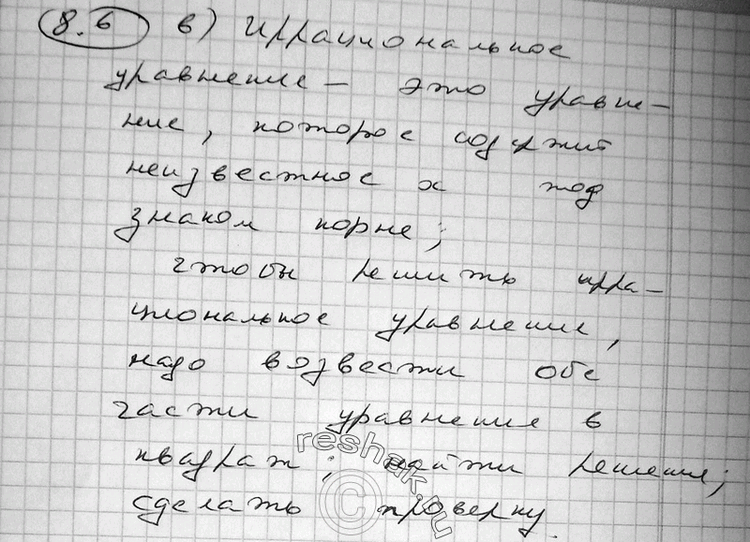 8.6 в) Иррациональное
уравнение – это уравне-
ние, которое содержит
неизвестное x под
знаком корня;
чтобы решить ирра-
циональное уравнение,
надо возвести обе
части уравнения в
квадрат; найти решения;
сделать проверку.
reshak.ru
©